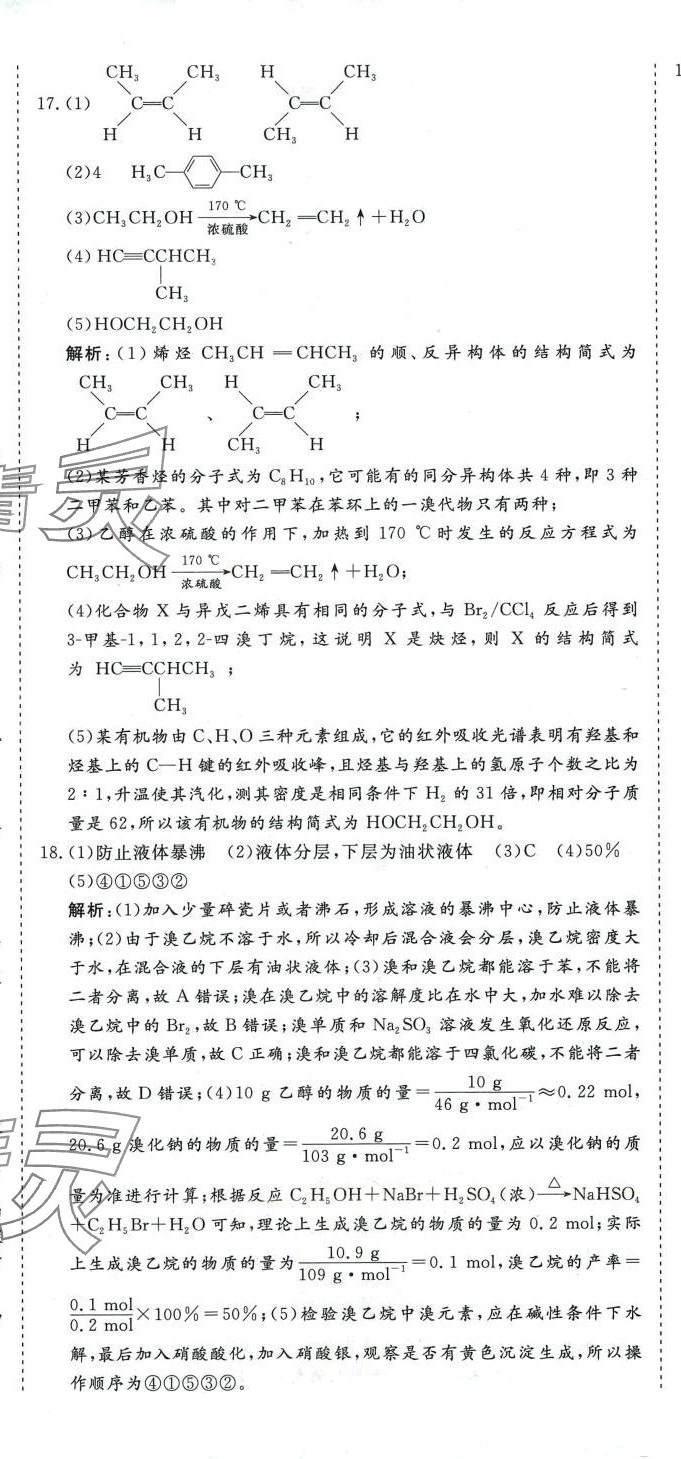 CH₃ CH₃ H CH₃
17.(1) C=C C=C
H H CH₃ H
(2)4 H₃C— —CH₃
(3)CH₃CH₂OH 170 ℃ 浓硫酸 → CH₂=CH₂↑+H₂O
(4) HC≡CCHCH₃
CH₃
(5)HOCH₂CH₂OH
解析:(1)烯烃 CH₃CH=CHCH₃ 的顺、反异构体的结构简式为
CH₃ CH₃ H CH₃
C=C 、 C=C ;
H H CH₃ H
(2)某芳香烃的分子式为 C₈H₁₀,它可能有的同分异构体共 4 种,即 3 种
二甲苯和乙苯。其中对二甲苯在苯环上的一溴代物只有两种;
(3)乙醇在浓硫酸的作用下,加热到 170 ℃ 时发生的反应方程式为
CH₃CH₂OH 170 ℃ 浓硫酸 → CH₂=CH₂↑+H₂O;
(4)化合物 X 与异戊二烯具有相同的分子式,与 Br₂/CCl₄ 反应后得到
3-甲基-1,1,2,2-四溴丁烷,这说明 X 是炔烃,则 X 的结构简式
为 HC≡CCHCH₃ ;
CH₃
(5)某有机物由 C、H、O 三种元素组成,它的红外吸收光谱表明有羟基和
烃基上的 C—H 键的红外吸收峰,且烃基与羟基上的氢原子个数之比为
2∶1,升温使其汽化,测其密度是相同条件下 H₂ 的 31 倍,即相对分子质
量是 62,所以该有机物的结构简式为 HOCH₂CH₂OH。
18.(1)防止液体暴沸 (2)液体分层,下层为油状液体 (3)C (4)50%
(5)④①⑤③②
解析:(1)加入少量碎瓷片或者沸石,形成溶液的暴沸中心,防止液体暴
沸;(2)由于溴乙烷不溶于水,所以冷却后混合液会分层,溴乙烷密度大
于水,在混合液的下层有油状液体;(3)溴和溴乙烷都能溶于苯,不能将
二者分离,故 A 错误;溴在溴乙烷中的溶解度比在水中大,加水难以除去
溴乙烷中的 Br₂,故 B 错误;溴单质和 Na₂SO₃ 溶液发生氧化还原反应,
可以除去溴单质,故 C 正确;溴和溴乙烷都能溶于四氯化碳,不能将二者
分离,故 D 错误;(4)10 g 乙醇的物质的量=10 g/46 g·mol⁻¹≈0.22 mol,
20.6 g 溴化钠的物质的量=20.6 g/103 g·mol⁻¹=0.2 mol,应以溴化钠的质
量为准进行计算;根据反应 C₂H₅OH+NaBr+H₂SO₄(浓) △→ NaHSO₄
+C₂H₅Br+H₂O 可知,理论上生成溴乙烷的物质的量为 0.2 mol;实际
上生成溴乙烷的物质的量为10.9 g/109 g·mol⁻¹=0.1 mol,溴乙烷的产率=
0.1 mol/0.2 mol×100%=50%;(5)检验溴乙烷中溴元素,应在碱性条件下水
解,最后加入硝酸酸化,加入硝酸银,观察是否有黄色沉淀生成,所以操
作顺序为④①⑤③②。
1
精灵
精灵